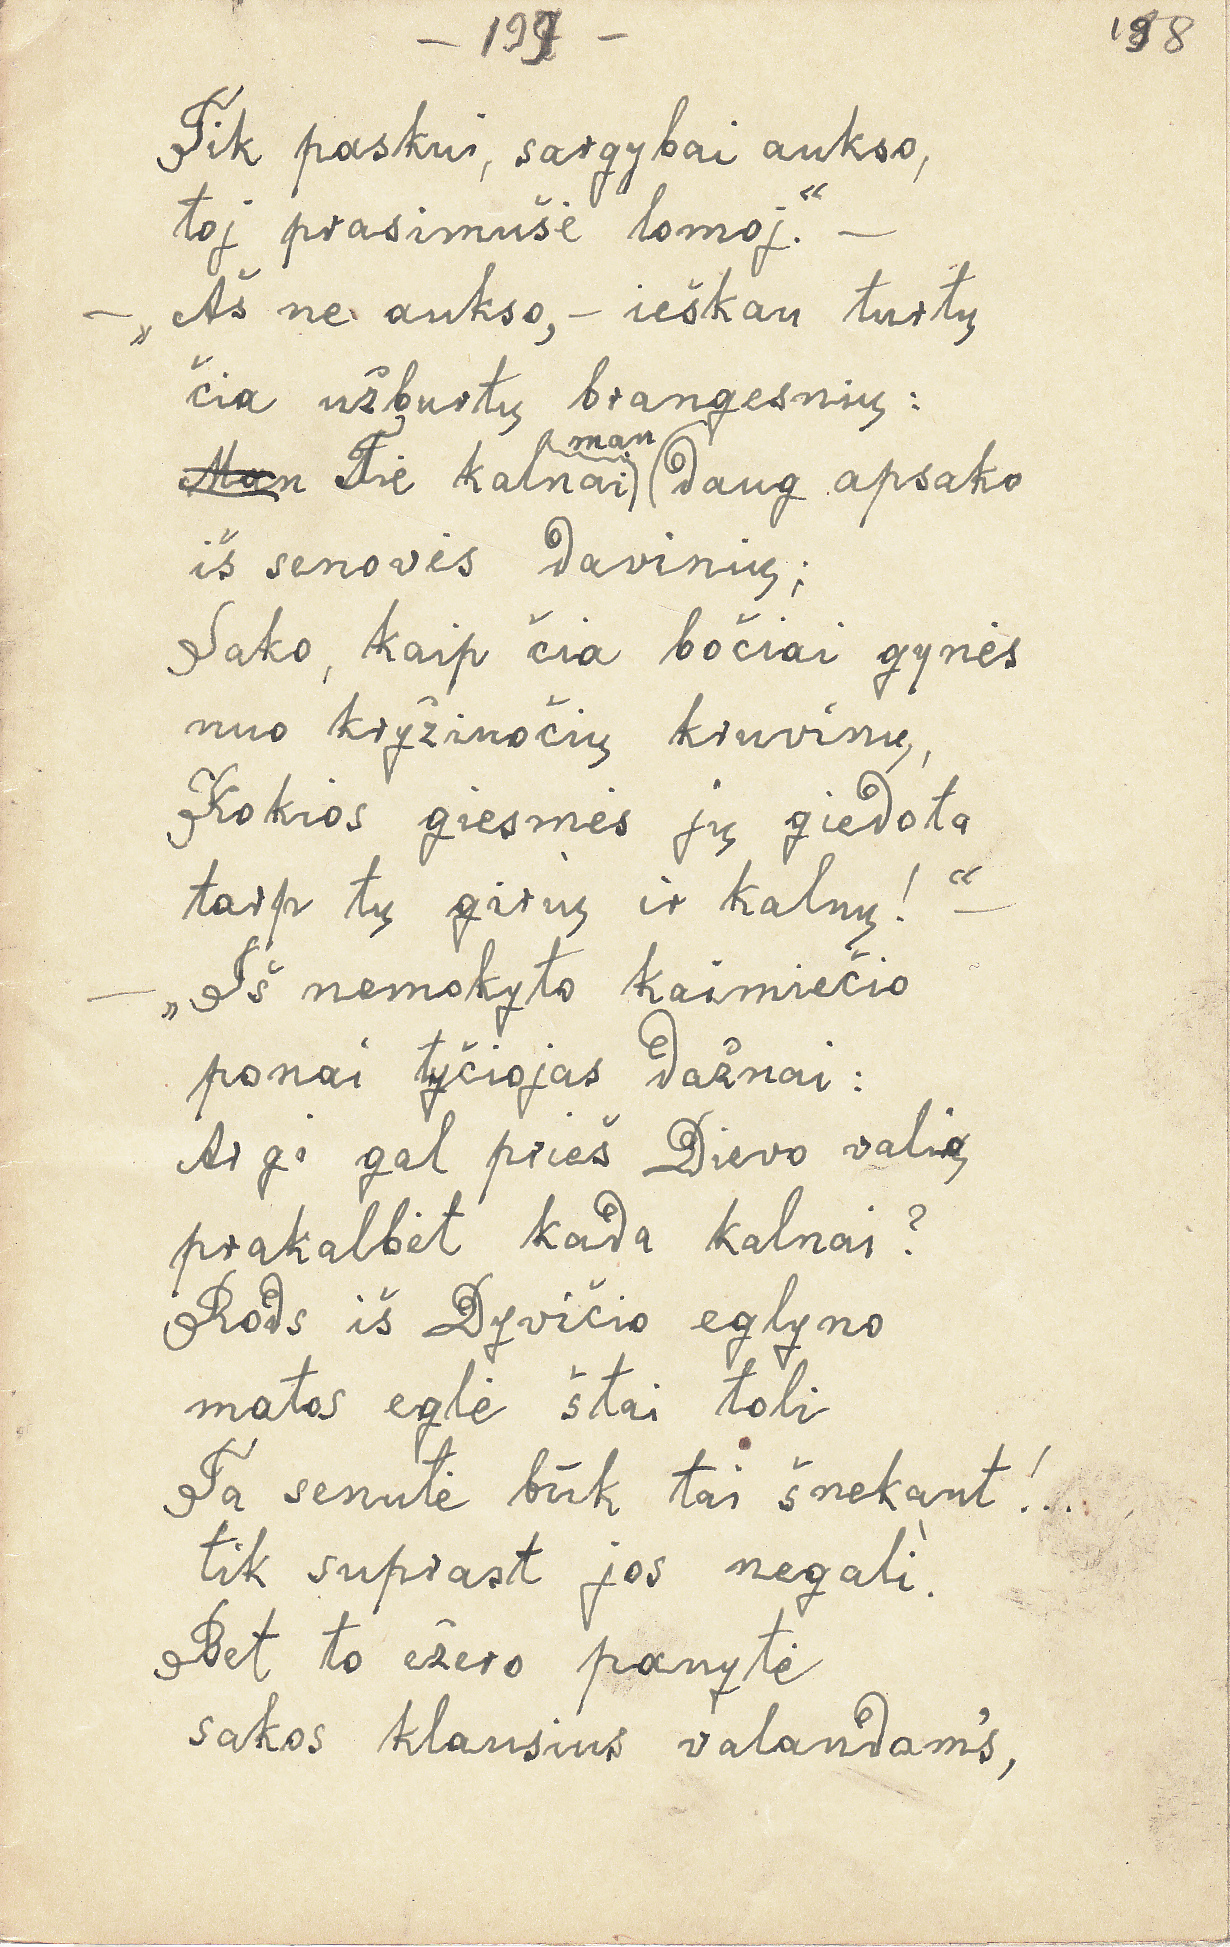 – 197 –
198
Tik paskui, sargybai aukso,
toj prasimušė lomoj.“ –
– „Aš ne aukso, – ieškau turtų
čia užburtų brangesnių:
Man Tie kalnai man daug apsako
iš senovės davinių;
Sako, kaip čia bočiai gynės
nuo kryžiuočių kruvinų,
Kokios giesmės jų giedota
tarp tų girių ir kalnų!“ –
– „Iš nemokyto kaimiečio
ponai tyčiojas dažnai:
Argi gal prieš Dievo valią
prakalbėt kada kalnai?
Rods iš Dyvičio eglyno
matos eglė štai toli
Ta senutė būk tai šnekant!...
tik suprast jos negali.
Bet to ežero panytė
sakos klausius valandam's,